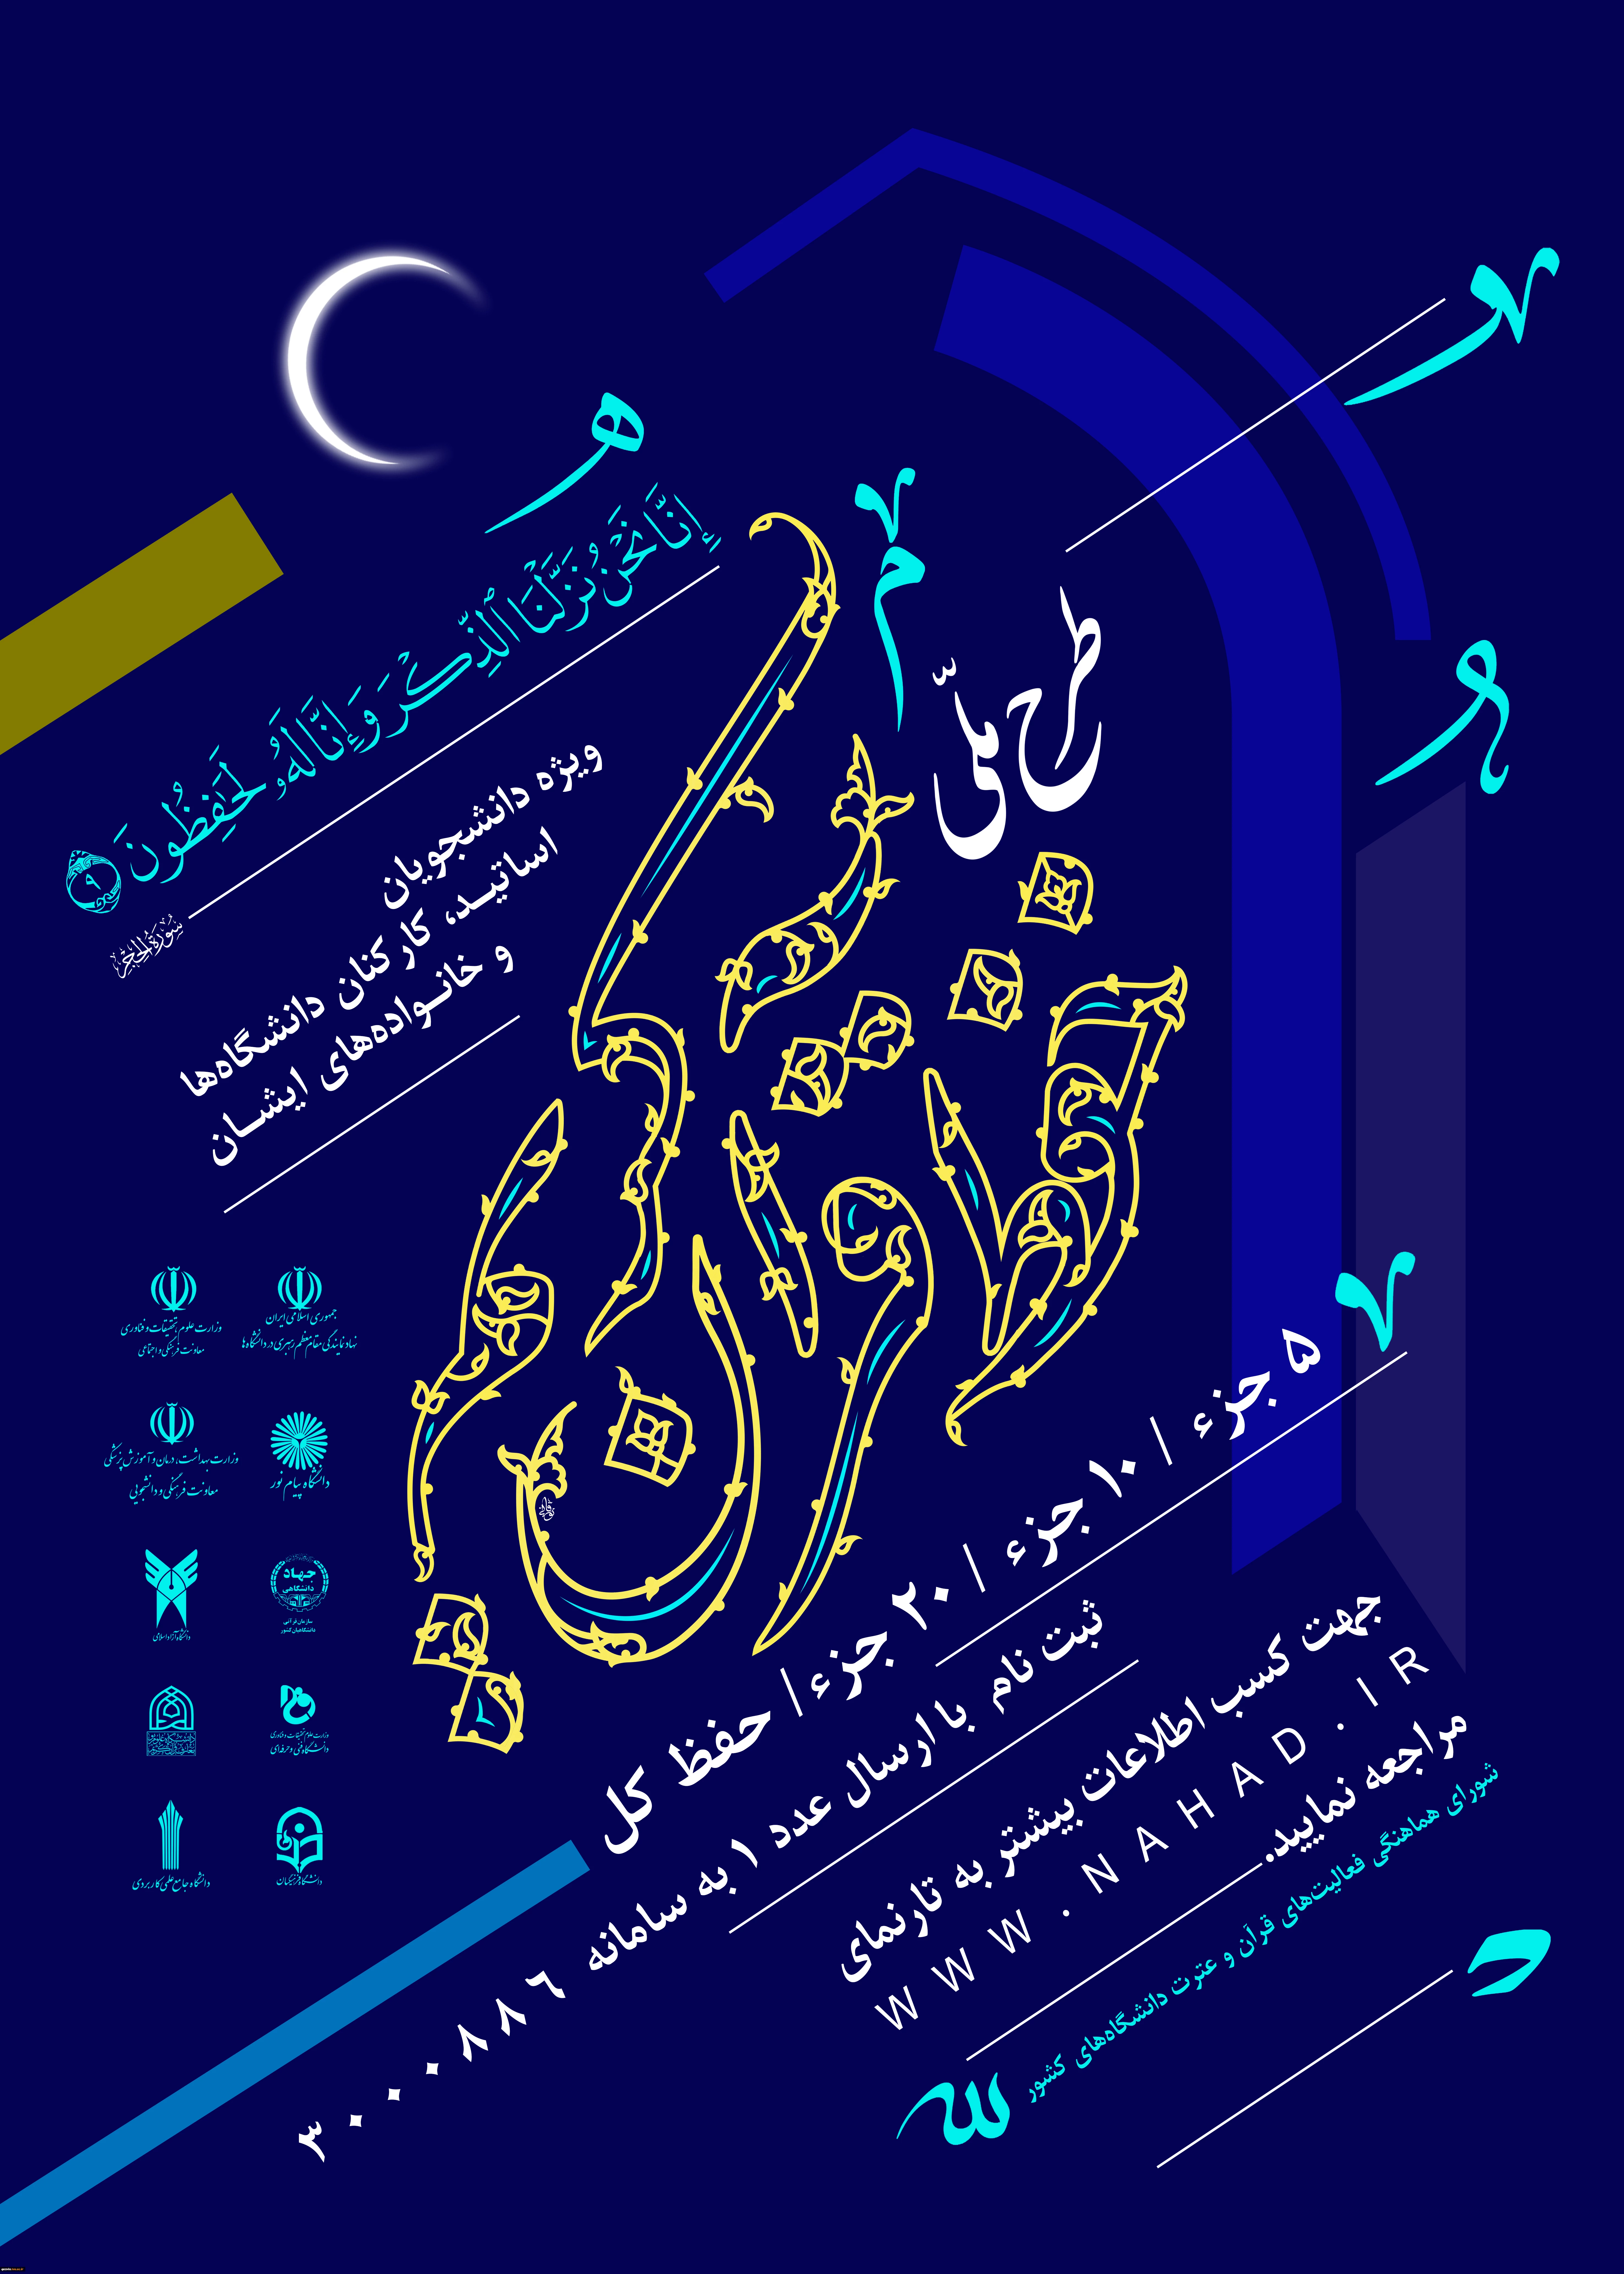 إِنَّا نَحْنُ نَزَّلْنَا ٱلذِّكْرَ وَإِنَّا لَهُۥ لَحَٰفِظُونَ ۹
سورة الحجر
طرح ملّی
حفظ قرآن کریم
ویژه دانشجویان
اساتیـد، کارکنان دانشگاه‌ها
و خانـواده‌های ایشـان
۵ جزء / ۱۰ جزء / ۲۰ جزء / حفظ کل
ثبت نام با ارسال عدد ۱ به سامانه ۳۰۰۰۰۸۸۶
جهت کسب اطلاعات بیشتر به تارنمای
WWW.NAHAD.IR
مراجعه نمایید.
شورای هماهنگی فعالیت‌های قرآن و عترت دانشگاه‌های کشور
جمهوری اسلامی ایران
نهاد نمایندگی مقام معظم رهبری در دانشگاه‌ها
وزارت علوم، تحقیقات و فناوری
معاونت فرهنگی و اجتماعی
دانشگاه پیام نور
وزارت بهداشت، درمان و آموزش پزشکی
معاونت فرهنگی و دانشجویی
جهاد
دانشگاهی
سازمان قرآنی
دانشگاهیان کشور
دانشگاه آزاد اسلامی
وزارت علوم، تحقیقات و فناوری
دانشگاه فنی و حرفه‌ای
دانشگاه فرهنگیان
دانشگاه جامع علمی کاربردی